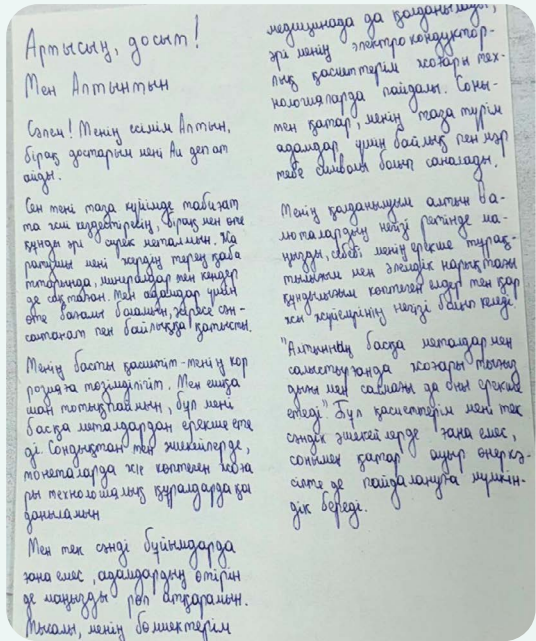 Артысың, досым!
Мен Алтынмын
Сәлем! Менің есімім Алтын,
бірақ достарым мені Au деп ат
айды.
Сен мені таза күйімде табиғат
та жиі кездестіресің, бірақ мен өте
құнды әрі сирек металмын. Жа
ратушы мені жердің терең қаба
ттарында, минералдар мен кендер
де сақтаған. Мен адамдар үшін
өте бағалы боламын, әсіресе сән-
салтанат пен байлыққа қатысты.
Менің басты қасиетім - менің кор
розияға төзімділігім. Мен ешқа
шан тотықпаймын, бұл мені
басқа металдардан ерекше ете
ді. Сондықтан мен әшекейлерде,
монеталарда және көптеген жоға
ры технологиялық құралдарда қол
даныламын
Мен тек сәнді бұйымдарда
ғана емес, адамдардың өмірін
де маңызды рөл атқарамын.
Мысалы, менің бөлшектерім
медицинада да қолданылады,
әрі менің электрокондуктор-
лық қасиеттерім жоғары тех-
нологияларда пайдалы. Соны-
мен қатар, менің таза түрім
адамдар үшін байлық пен мәр
тебе символы болып саналады.
Менің қолданылуым алтын ва-
люталардың негізі ретінде ма-
ңызды, себебі менің ерекше тұрақ-
тылығым мен әлемдік нарықтағы
құндылығым көптеген елдер мен қар
жы жүйелерінің негізі болып келеді.
"Алтынның басқа металдармен
салыстырғанда жоғары тығыз
дығы мен салмағы да оны ерекше
етеді". Бұл қасиеттерім мені тек
сәндік әшекейлерде ғана емес,
сонымен қатар ауыр өнеркә-
сіпте де пайдалануға мүмкін-
дік береді.